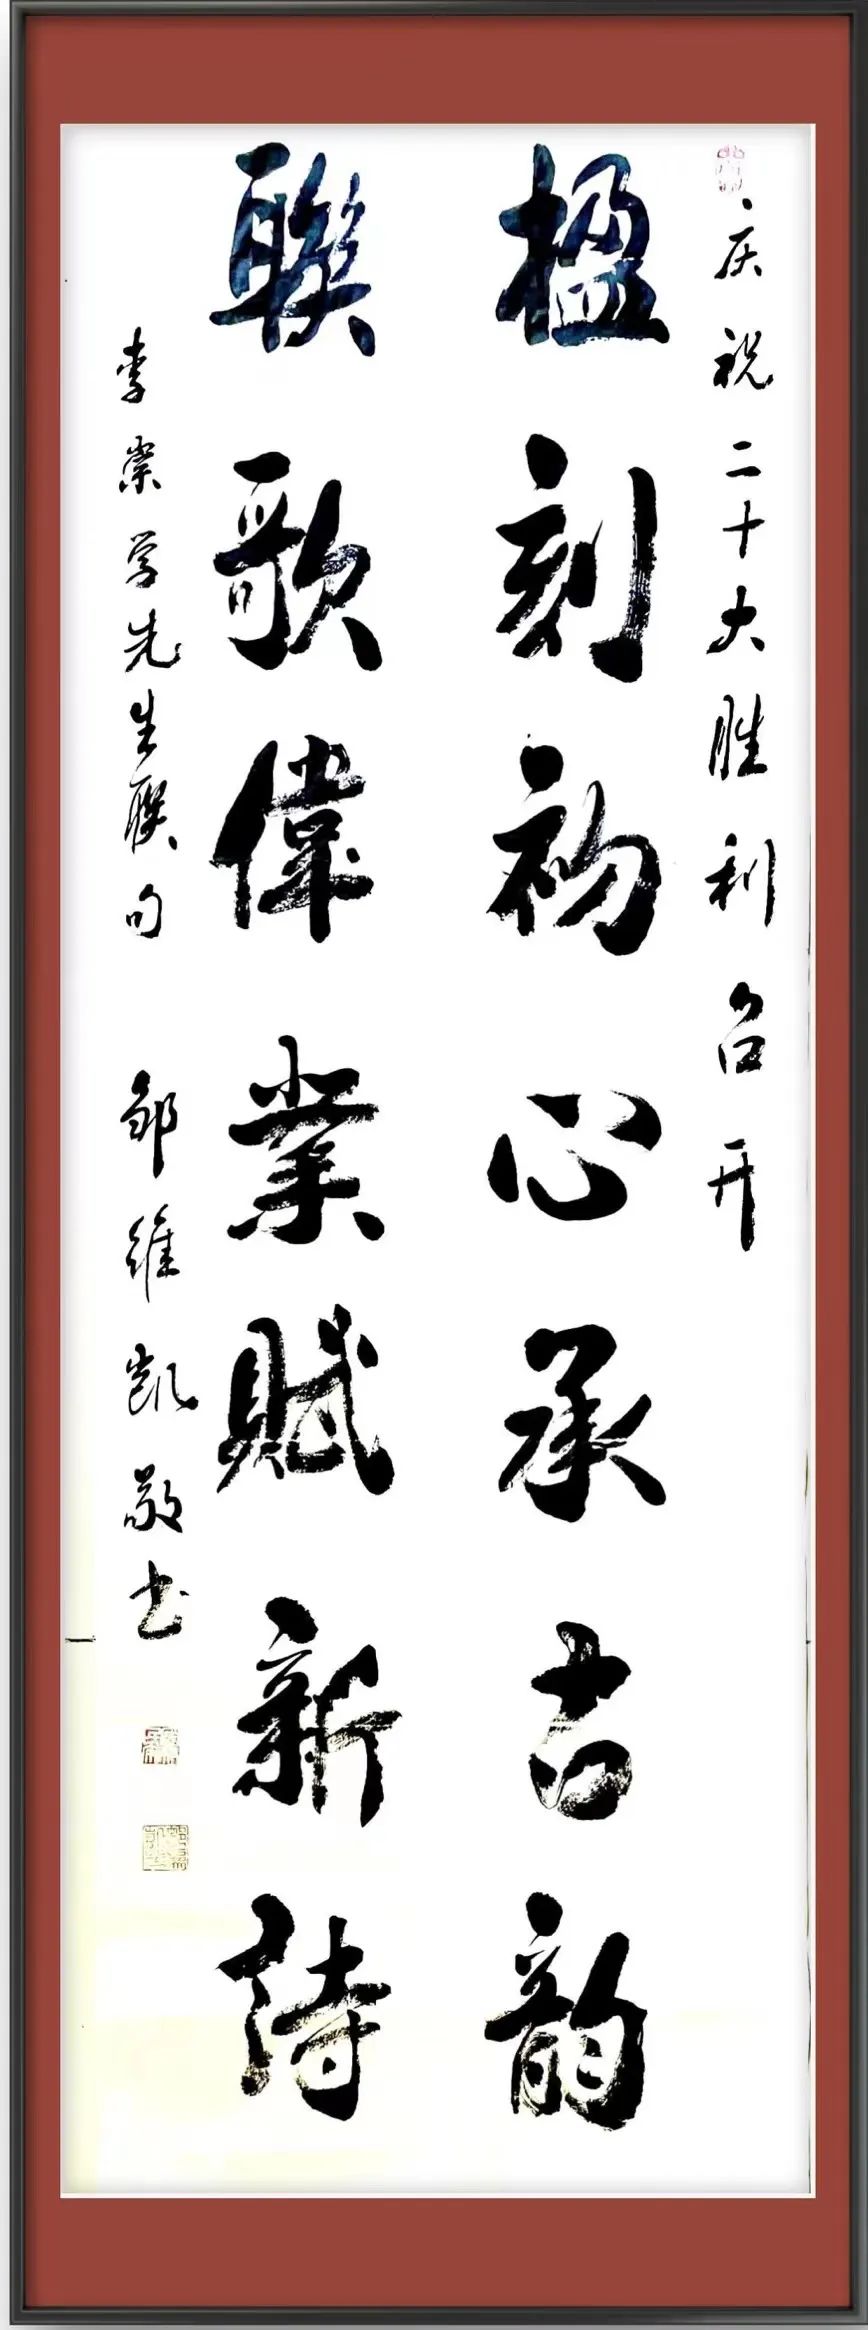 庆祝二十大胜利召开
楹刻初心承古韵
聯歌偉業賦新詩
李崇学先生联句
邹維凯敬书